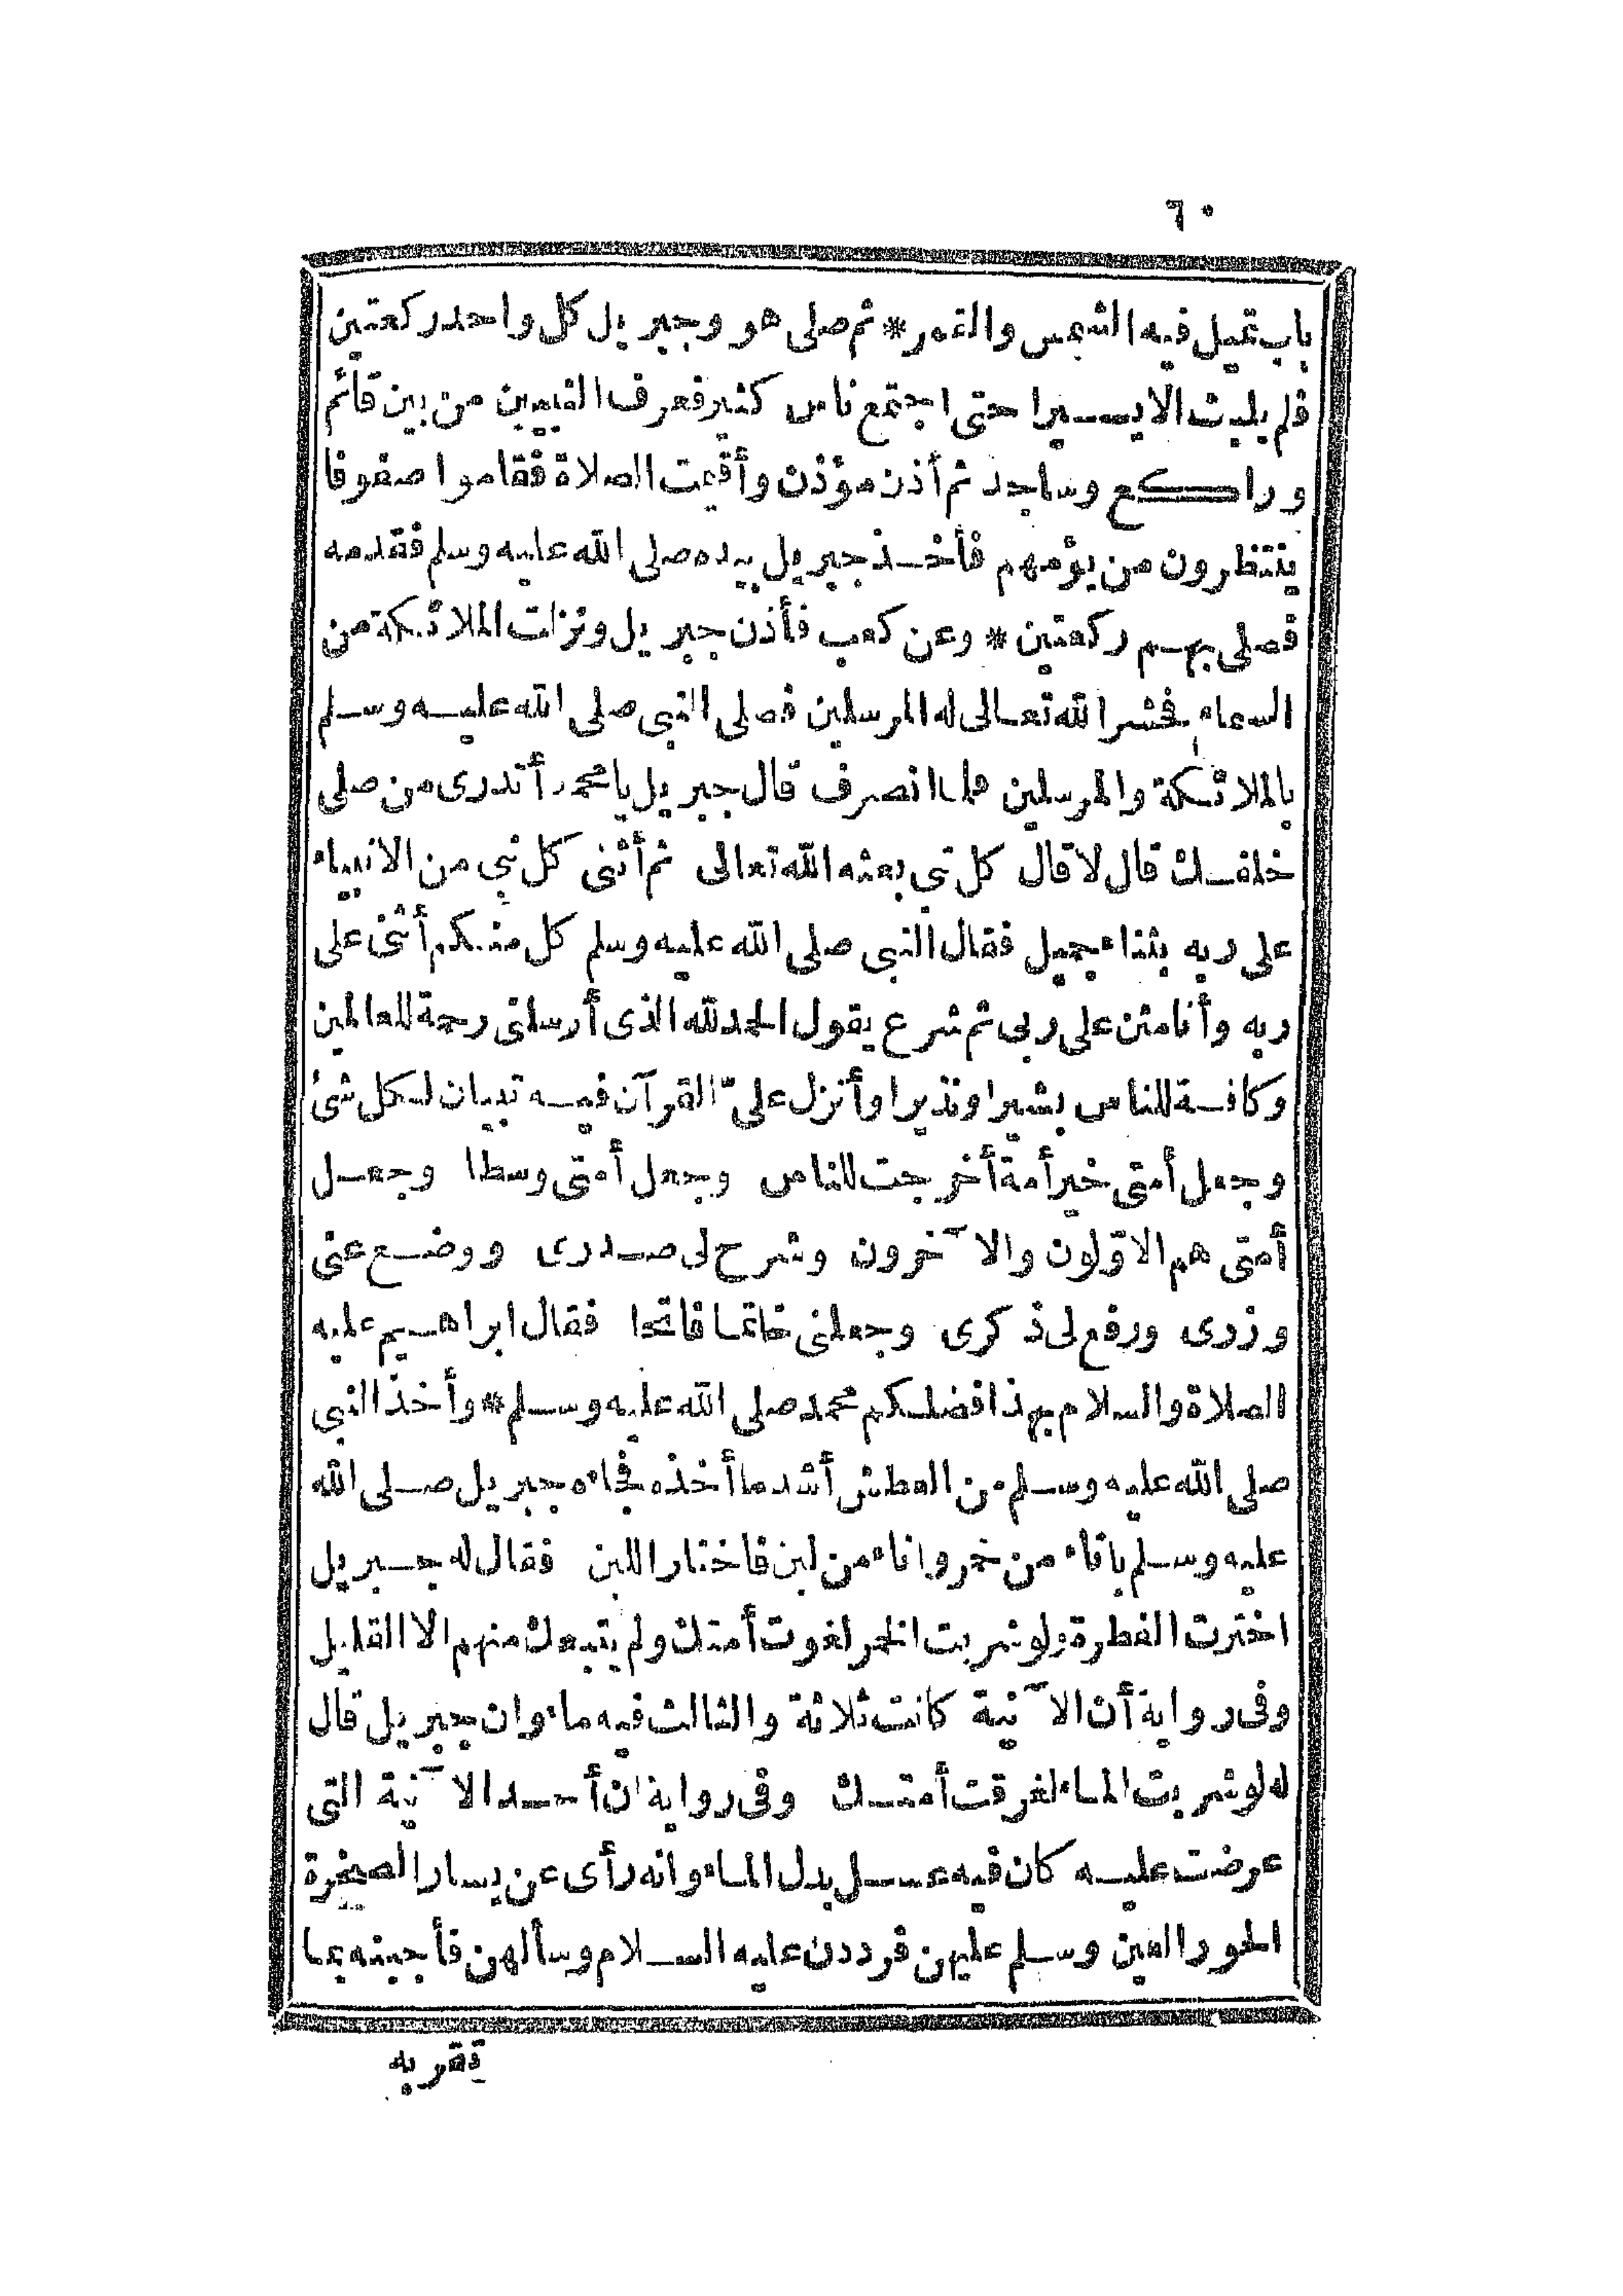 ٦٠
باب تميل فيه الشمس والقمر * ثم صلى هو وجبريل كل واحد ركعتين
فلم يلبث الا يسيرا حتى اجتمع ناس كثير فعرف النبيين من بين قائم
وراكع وساجد ثم أذن مؤذن وأقيمت الصلاة فقاموا صفوفا
ينتظرون من يؤمهم فأخذ جبريل بيده صلى الله عليه وسلم فقدمه
فصلى بهم ركعتين * وعن كعب فأذن جبريل ونزلت الملائكة من
السماء فحشر الله تعالى له المرسلين فصلى النبى صلى الله عليه وسلم
بالملائكة والمرسلين فلما انصرف قال جبريل يا محمد أتدرى من صلى
خلفك قال لا قال كل نبى بعثه الله تعالى ثم أثنى كل نبى من الانبياء
على ربه بثناء جميل فقال النبى صلى الله عليه وسلم كل منكم أثنى على
ربه وأنا مثن على ربى ثم شرع يقول الحمد لله الذى أرسلنى رحمة للعالمين
وكافة للناس بشيرا ونذيرا وأنزل علىّ القرآن فيه تبيان لكل شئ
وجعل أمتى خير أمة أخرجت للناس وجعل أمتى وسطا وجعل
أمتى هم الاوّلون والآخرون وشرح لى صدرى ووضع عنى
وزرى ورفع لى ذكرى وجعلنى خاتما فاتحا فقال ابراهيم عليه
الصلاة والسلام بهذا فضلكم محمد صلى الله عليه وسلم * وأخذ النبى
صلى الله عليه وسلم من العطش أشد ما أخذه فجاءه جبريل صلى الله
عليه وسلم باناء من خمر واناء من لبن فاختار اللبن فقال له جبريل
اخترت الفطرة ولو شربت الخمر لغوت أمتك ولم يتبعك منهم الا القليل
وفى رواية أن الآنية كانت ثلاثة والثالث فيه ماء وان جبريل قال
له لو شربت الماء لغرقت أمتك وفى رواية ان أحد الآنية التى
عرضت عليه كان فيه عسل بدل الماء وانه رأى عن يسار الصخرة
الحور العين وسلم عليهن فرددن عليه السلام وسألهن فأجبنه بما
تقر به